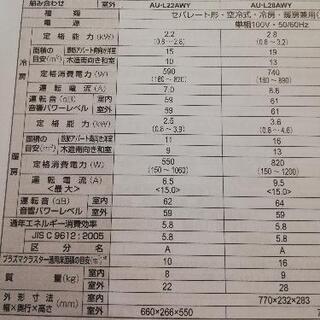 組み合わせ 室外 AU-L22AWY AU-L28AWY
種類 セパレート形・空冷式・冷房・暖房兼用
電源 単相100V・50/60Hz
冷房
定格能力(kW) 2.2 2.8
(0.8～2.8) (0.8～3.2)
面積の目安(m²) 鉄筋アパート南向き洋室 15 19
木造南向き和室 10 13
定格消費電力(W) 590 840
運転電流(A) 7.0 8.6
運転音(dB) 室内 59 61
音響パワーレベル 室外 59 61
暖房
定格能力(kW) 2.5 3.6
面積の目安(m²) 鉄筋アパート南向き洋室 11 16
木造南向き和室 9 13
定格消費電力(W) 550 820
(150～1060) (150～1200)
運転電流(A) 6.5 9.5
<最大> <15.0> <15.0>
運転音(dB) 室内 62 64
音響パワーレベル 室外 59 59
通年エネルギー消費効率 5.8 5.8
JIS C 9612:2005 5.8 5.8
区分名 A A
プラズマクラスター適用床面積の目安(m²) 10 16
質量(kg) 室内 8 9
室外 22 28
外形寸法(mm) 室内 770×232×283
幅×奥行×高さ 室外 660×266×550 7